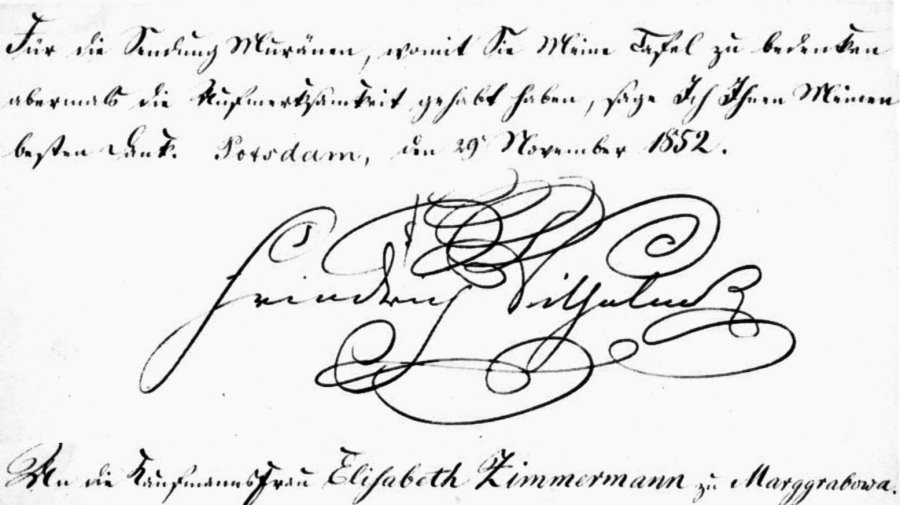 Für die Sendung Muränen, womit Sie Meine Tafel zu bedenken
abermals die Aufmerksamkeit gehabt haben, sage Ich Ihnen Meinen
besten Dank. Potsdam, den 29 November 1852.
Friedrich Wilhelm
An die Kaufmannsfrau Elisabeth Zimmermann zu Marggrabowa.